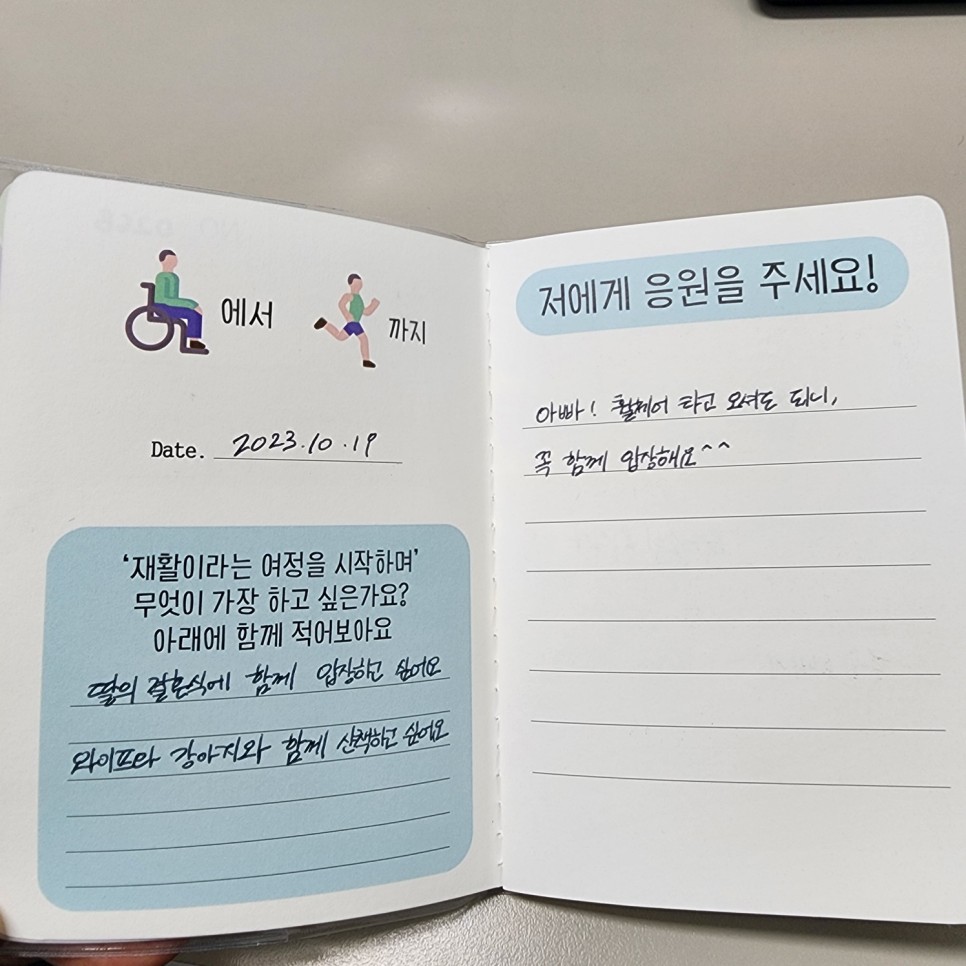 에서 까지
Date. 2023.10.19
'재활이라는 여정을 시작하며'
무엇이 가장 하고 싶은가요?
아래에 함께 적어보아요
딸의 결혼식에 함께 입장하고 싶어요
와이프와 강아지와 함께 산책하고 싶어요
저에게 응원을 주세요!
아빠! 휠체어 타고 오셔도 되니,
꼭 함께 입장해요^^